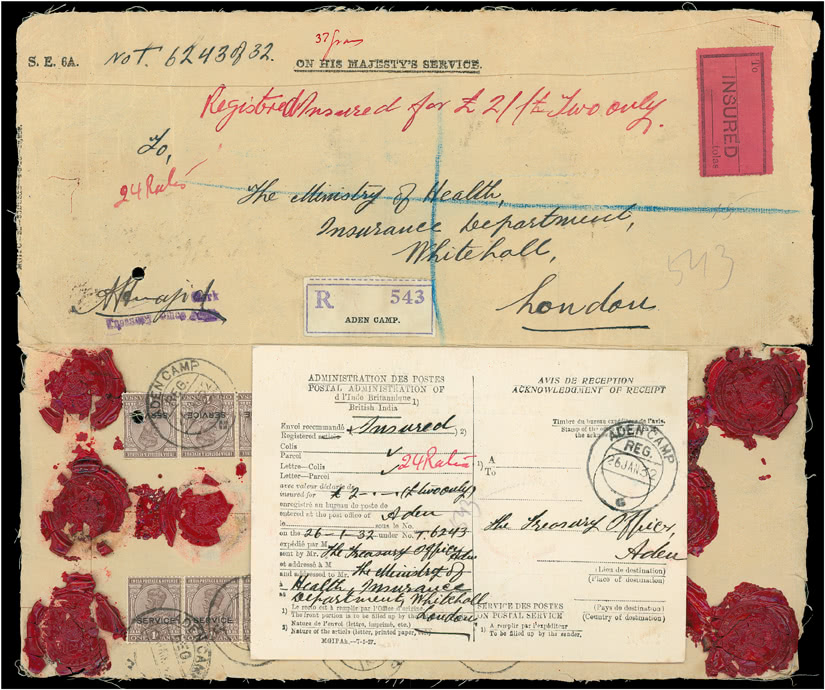 37 gms
S. E. 6A. No T. 6243 of 32.
ON HIS MAJESTY'S SERVICE.
Registered Insured for £ 2/ (£ Two only.
To
INSURED
tolas
To,
24 Ratis
The Ministry of Health,
Insurance Department,
Whitehall,
London
543
Clerk
R 543
ADEN CAMP.
ADEN CAMP
REG.
SERVICE
SERVICE
ADMINISTRATION DES POSTES
POSTAL ADMINISTRATION OF
d'Inde Britannique 1)
British India
Envoi recommandé Insured 2)
Registered article
Colis
Parcel
Lettre—Colis 24 Ratis
Letter—Parcel
avec valeur déclarée de
insured for £ 2 - . - (£ two only)
enregistré au bureau de poste de
entered at the post office of Aden
le sous le No.
on the 26-1-32 under No. T. 6243
expédié par M
sent by Mr. The Treasury Officer Aden
et adressé à M
and addressed to Mr. The Ministry of
à Health, Insurance
at Department, Whitehall
London
1) Le recto est à remplir par l'Office d'origine.
The front portion is to be filled up by the
2) Nature de l'envoi (lettre, imprimé, etc.)
Nature of the article (letter, printed paper, etc.)
MGIPAh.—7-1-27.
AVIS DE RECEPTION
ACKNOWLEDGMENT OF RECEIPT
Timbre du bureau expéditeur de l'avis.
Stamp of the office
the
ADEN CAMP
REG.
26 JAN. 32
6
1) A
To
The Treasury Officer,
Aden
(Lieu de destination)
(Place of destination)
SERVICE DES POSTES
ON POSTAL SERVICE
(Pays de destination)
(Country of destination)
1) A remplir par l'expéditeur
To be filled up by the sender.
SERVICE SERVICE
ADEN CAMP
REG